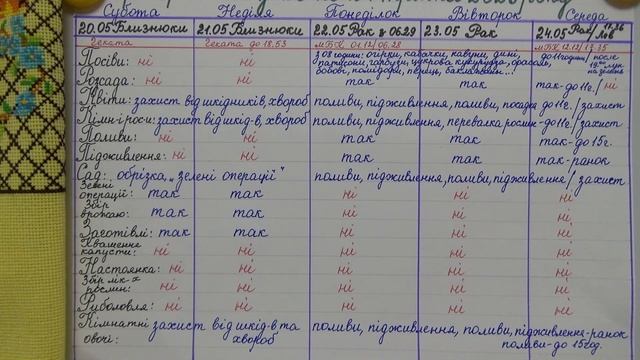 Субота Неділя Понеділок Вівторок Середа
20.05 Близнюки 21.05 Близнюки 22.05 Рак з 06.29 23.05 Рак 24.05 Рак/Лев
Геката Геката до 18.53 МБК 01.12/06.28 МБК 12.12/17.35
Посіви: ні ні з 08 години: огірки, кабачки, кавуни, дині, до 11 години/ після
патисони, гарбузи, цукрова кукурудза,
бобові, помідори, перець, баклажани... на зелень
Розсада: ні ні так так так-до 11г./ні
Квіти: захист від шкідників, хвороб поливи, підживлення, поливи, посадка до 11г./захист
Кімн-і роси: захист від шкід-в, хвороб поливи, підживлення, перевалка рослин-до 11г./захист
Поливи: ні ні так так так-до 15г.
Підживлення: ні ні так так так-ранок
Сад: обрізка, „зелені операції" поливи, підживлення, поливи, підживлення/захист
Зелені
операції: так так ні ні ні
Збір
врожаю: так так ні ні ні
Заготівлі: так так ні ні ні
Квашення
капусти: ні ні ні ні ні
Настоянка: ні ні ні ні ні
Збір лік-х
рослин: ні ні ні ні ні
Риболовля: ні ні ні ні ні
Кімнатні захист від шкід-в та поливи, підживлення, поливи, підживлення-ранок
овочі: хвороб поливи-до 15год.